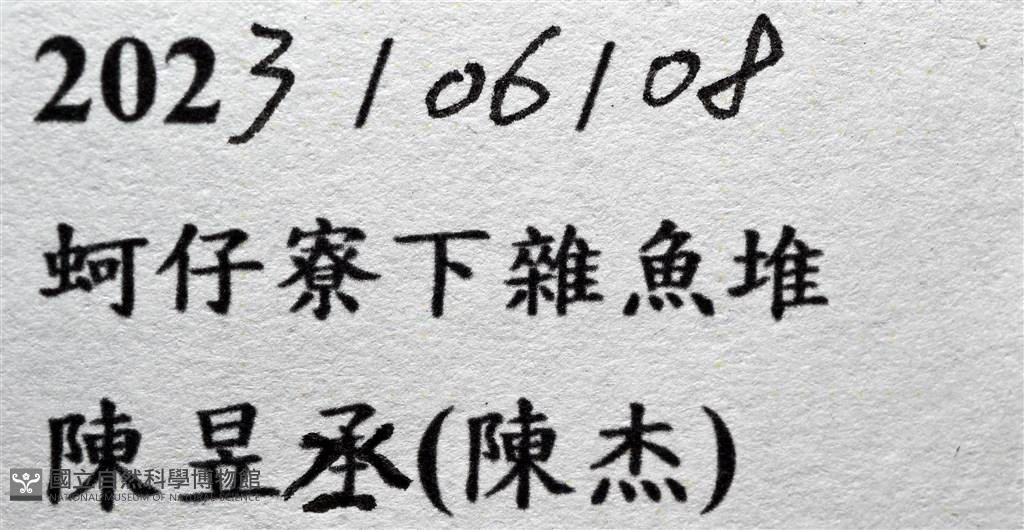 2023/06/08
蚵仔寮下雜魚堆
陳昱丞(陳杰)
國立自然科學博物館
NATIONAL MUSEUM OF NATURAL SCIENCE